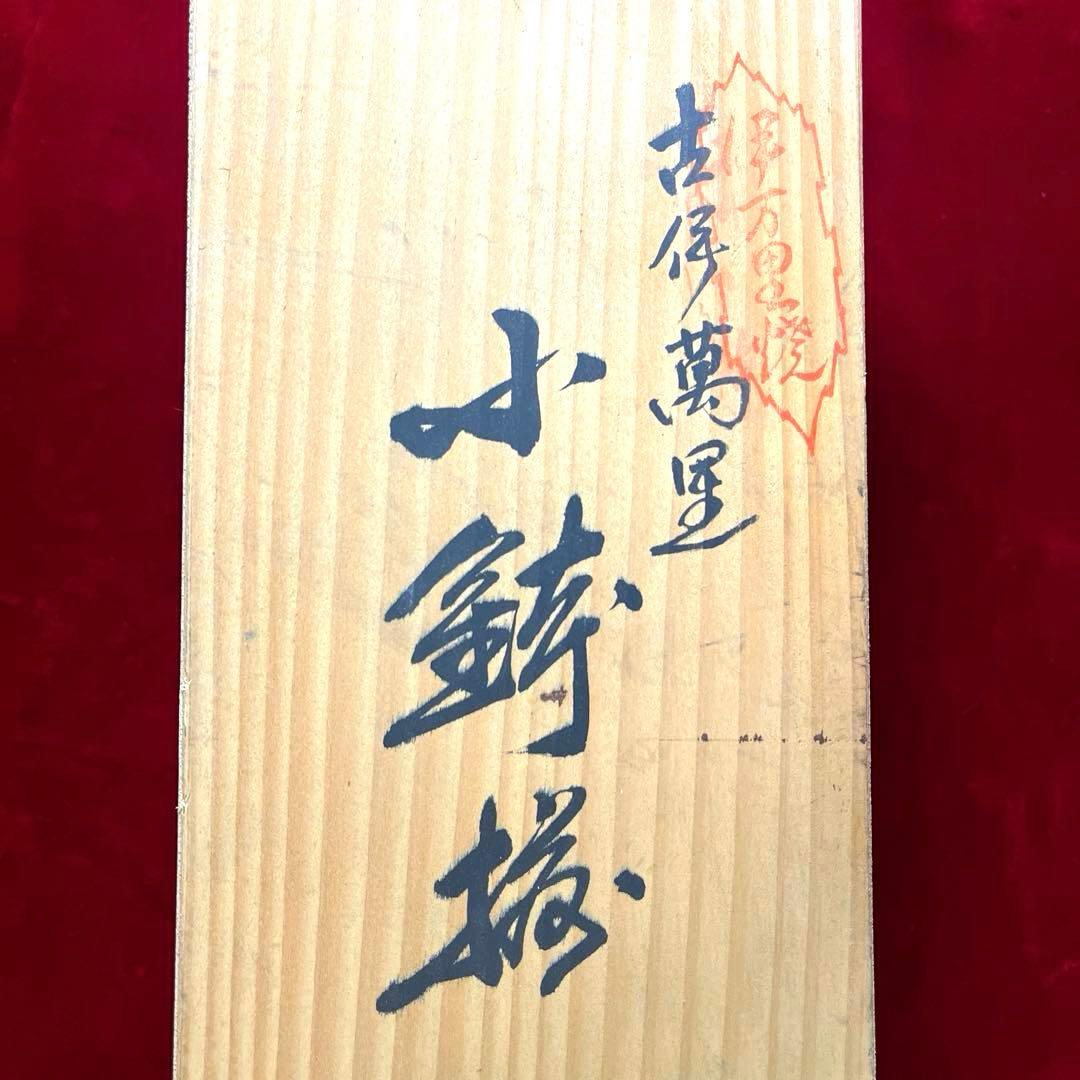 伊万里焼
古伊萬里
小鉢揃